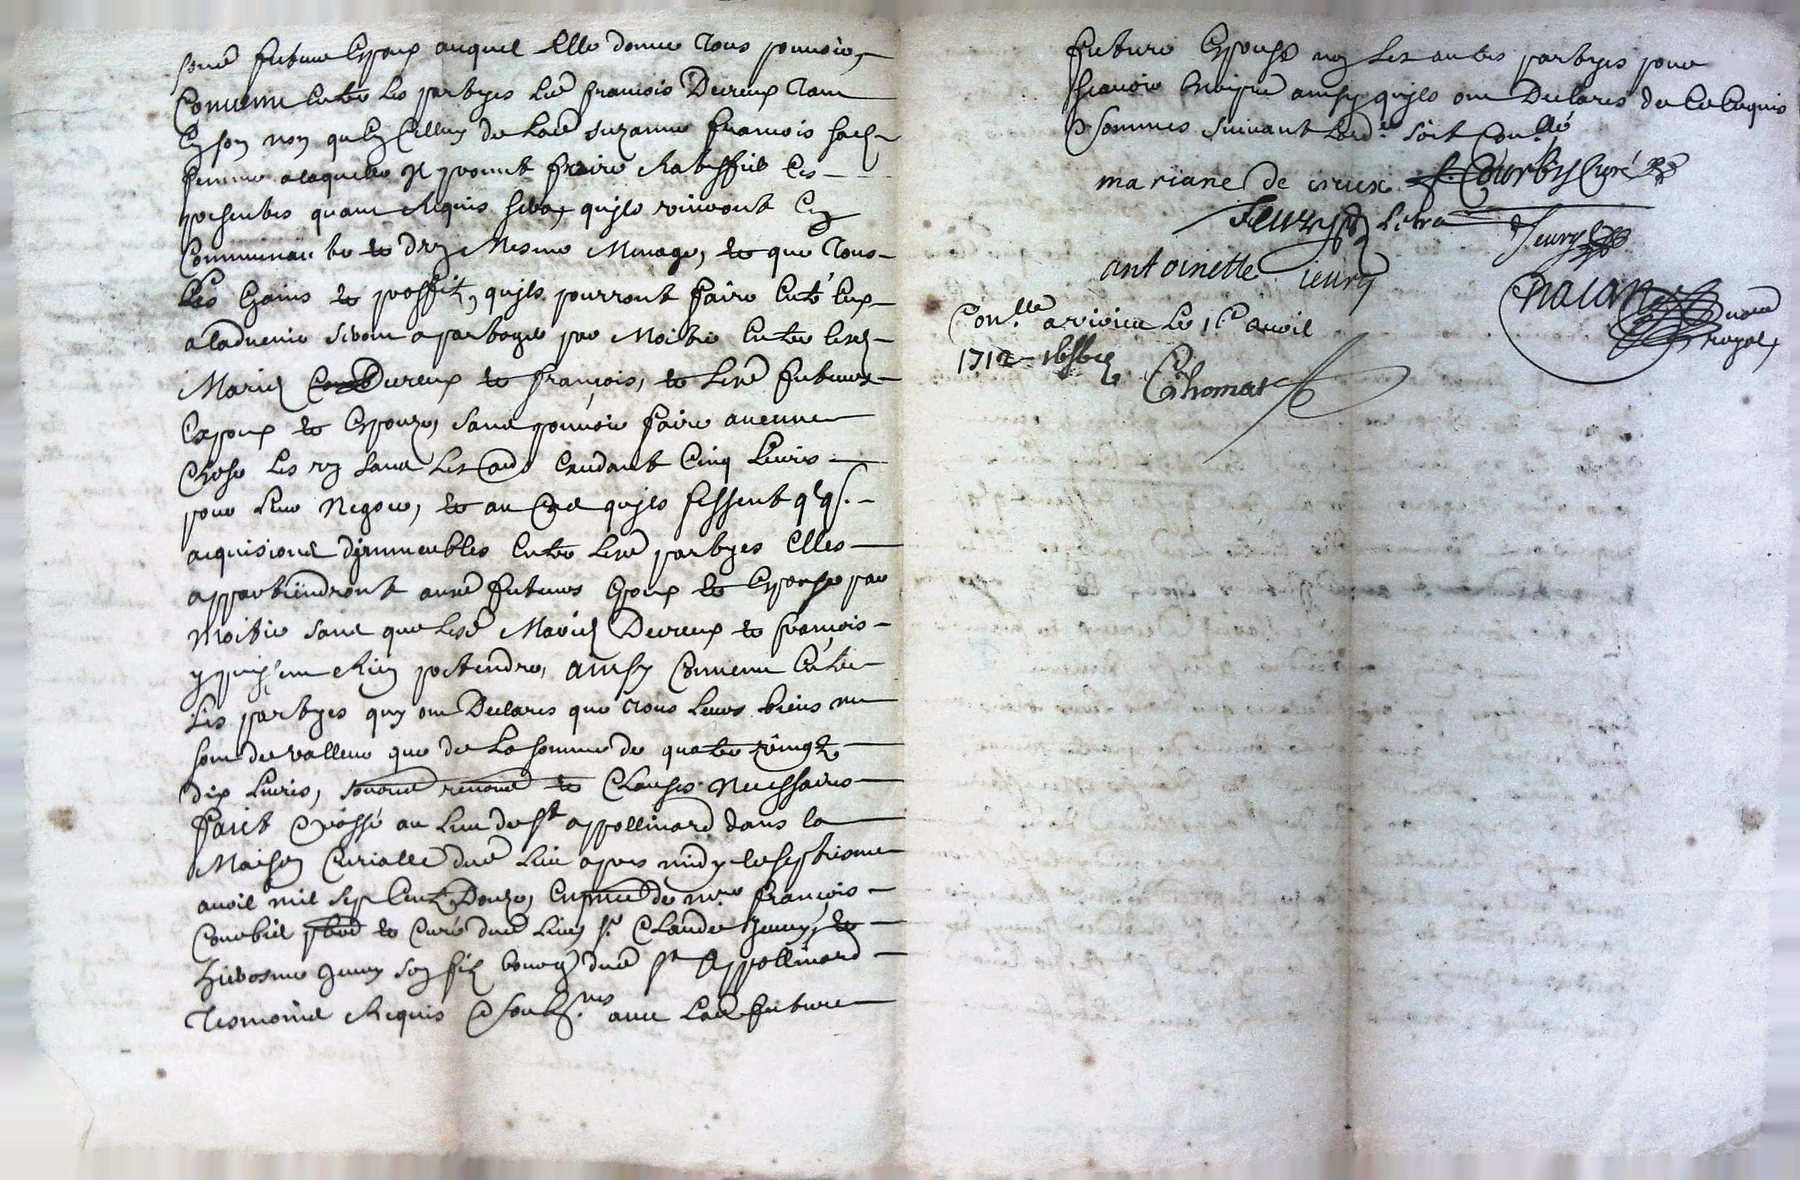 futur Espoux auquel Elle donne tous pouvoirs
Convenu Entre les partyes led françois Decreux tant
En son non qu'En Celluy de lad suzanne francois sad
femme a laquelle Il promet faire Rattiffier Ces
presentes quant Requis sera, quils vivront En
Communauté & dun Mesme Menage, & que tous
les Gains & proffit, quils pourront faire Entre Eux
a ladvenir seront a partager par Moitié Entre lesd
Mariés Decreux & françois, & lesd futurs
Espoux & Espouze, sans pouvoir faire aucune
Chose les un sans les au Cendant Cinq Livres
pour leur Negoce, & au Cas quils fissent qlq
acquisions dimmeubles Entre lesd partyes Elles
appartiendront ausd futurs Epoux & Espouse par
Moitié sans que lesd Mariés Decreux & françois
y puissent Rien pretendre, ainsy Convenu Entre
Les partyes quy ont Declarés que tous leurs biens ne
sont de valleur que de la somme de quatre vingt
dix Livres, & Clauses Necessaires
fait & passé au lieu de st appollinard dans la
Maison Curialle dud lieu apres midy le septiesme
avril mil sept Cent Douze, En pnce de mre françois
Courbis pbre & Curé dud Lieu, sr Claude Jeury, &
hierosme Jeury son fils bourg dud st Appollinard
Tesmoins Requis & soubs.nés avec lad future
future Espouse non les autres partyes pour
scavoir Ecrire ainsy quils ont Declarés de Ce Enquis
& sommes suivant Led. soit Con.llé
mariane de creux f. Courbis Curé
Jeury Jeury
antoinette ieury
Chalan Notaire
royal
Con.llé a virieu Le 1 avril
1712
Thomas